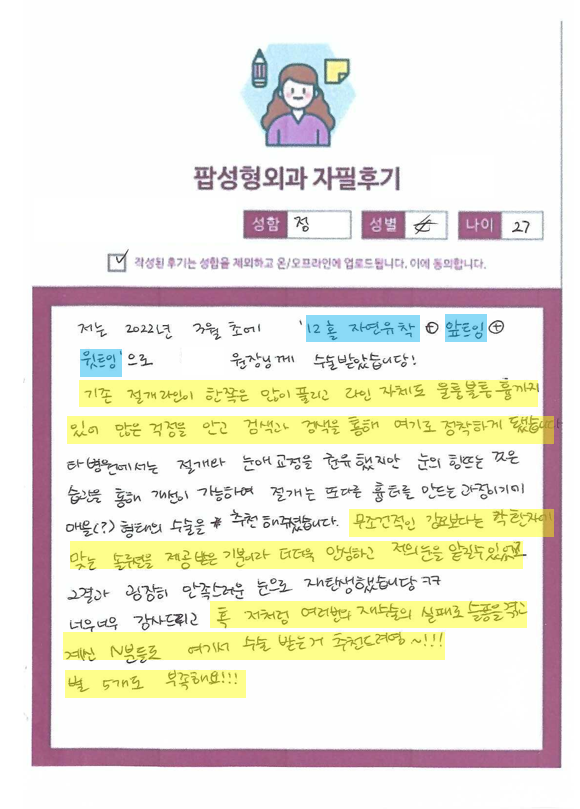 팝성형외과 자필후기
성함 정 성별 나이 27
작성된 후기는 성함을 제외하고 온/오프라인에 업로드됩니다. 이에 동의합니다.
저는 2022년 3월 초에 '12홀 자연유착 + 앞트임 +
윗트임'으로 원장님께 수술받았습니당!
기존 절개라인이 한쪽은 많이 풀리고 라인 자체도 울퉁불퉁 흉까지
있어 많은 걱정을 안고 검색과 검색을 통해 여기로 정착하게 됐습니다
타병원에서는 절개와 눈매교정을 권유했지만 눈의 힘뜨는 것은
습관을 통해 개선이 가능하며 절개는 또다른 흉터를 만드는 과정이기에
매몰(?) 형태의 수술을 추천해주셨습니다. 무조건적인 강요보다는 환자에
맞는 솔루션을 제공받은 기분이라 더더욱 안심하고 저의 눈을 맡길 수 있었고
그결과 굉장히 만족스러운 눈으로 재탄생했습니당 ㅋㅋ
너우너우 감사드리고 혹 저처럼 여러번의 재수술의 실패로 슬픔을 겪고
계신 N분들도 여기서 수술 받는거 추천드려영~!!!
별 5개도 부족해요!!!